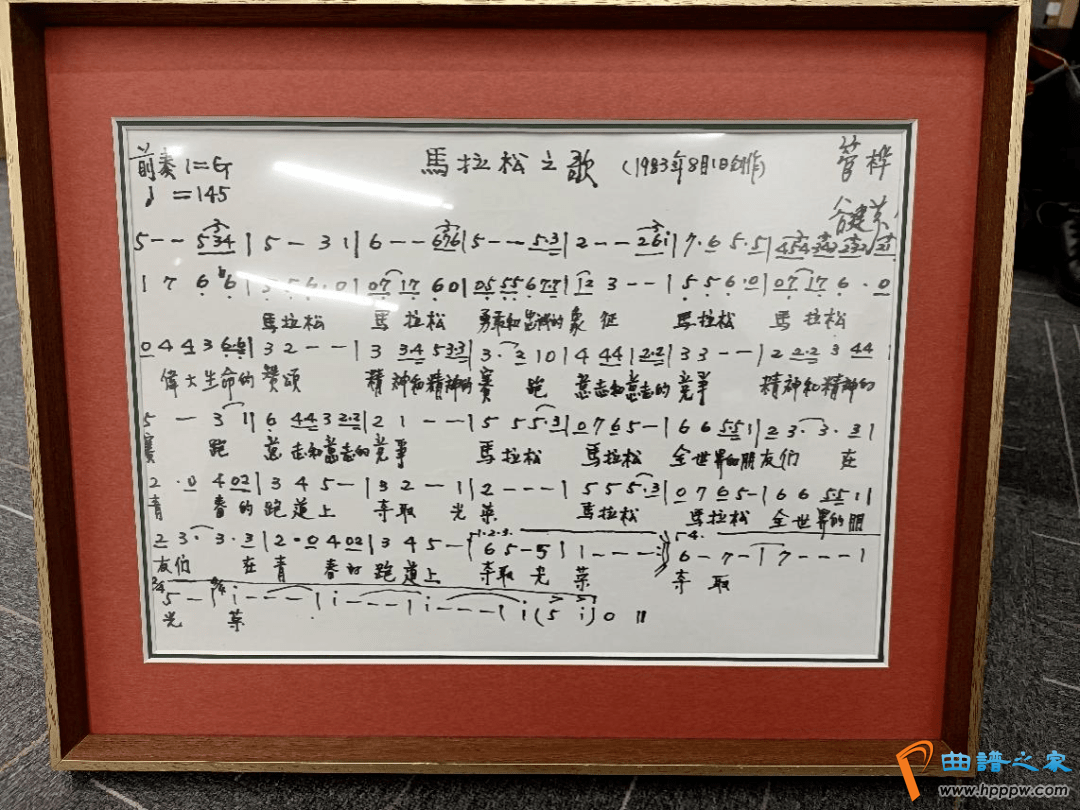 前奏 1=G 馬拉松之歌 (1983年8月1日創作) 管桦
♩=145 谷建芬
5 - - 534 | 5 - 3 1 | 6 - - 676 | 5 - - 5·3 | 2 - - 26i | 7·6 5·5 | 454 343 232 121
1 7 6 ♭6 | 5·5 6·0 | 07 17 60 | 05 55 6 77 | 12 3 - - | 5·5 6·0 | 07 17 6·0
馬拉松 馬拉松 勇敢和忠誠的象征 馬拉松 馬拉松
0 4 4 3 6·6 | 3 2 - - | 3 3·4 5 3·3 | 3·2 1 0 | 4 44 | 2·2 | 3 3 - - | 2 2·2 3 44 |
偉大生命的贊頌 精神和精神的賽跑 意志和意志的竞爭 精神和精神的
5 - 3 1 | 6 44 3 2·2 | 2 1 - - | 5 5 5·3 | 0 7 6 5 - | 6 6 5·5 1 | 2 3· 3·3 |
賽跑 意志和意志的竞爭 馬拉松 馬拉松 全世界的朋友們 在
2·0 4 02 | 3 4 5 - | 3 2 - 1 | 2 - - - | 5 5 5·3 | 0 7 6 5 - | 6 6 5·5 1 |
青春的跑道上 夺取光荣 馬拉松 馬拉松 全世界的朋
2 3· 3·3 | 2·0 4 02 | 3 4 5 - | 1.2.3. 6 5 - 5 | 1 - - - :|| 4. 6 - 7 - | 7 - - - |
友们 在青春的跑道上 夺取光荣 夺取
2/4 5 - | 4/4 i - - - | i - - - | i - - - | i (5 i) 0 ||
光荣
曲譜之家
www.hpppw.com